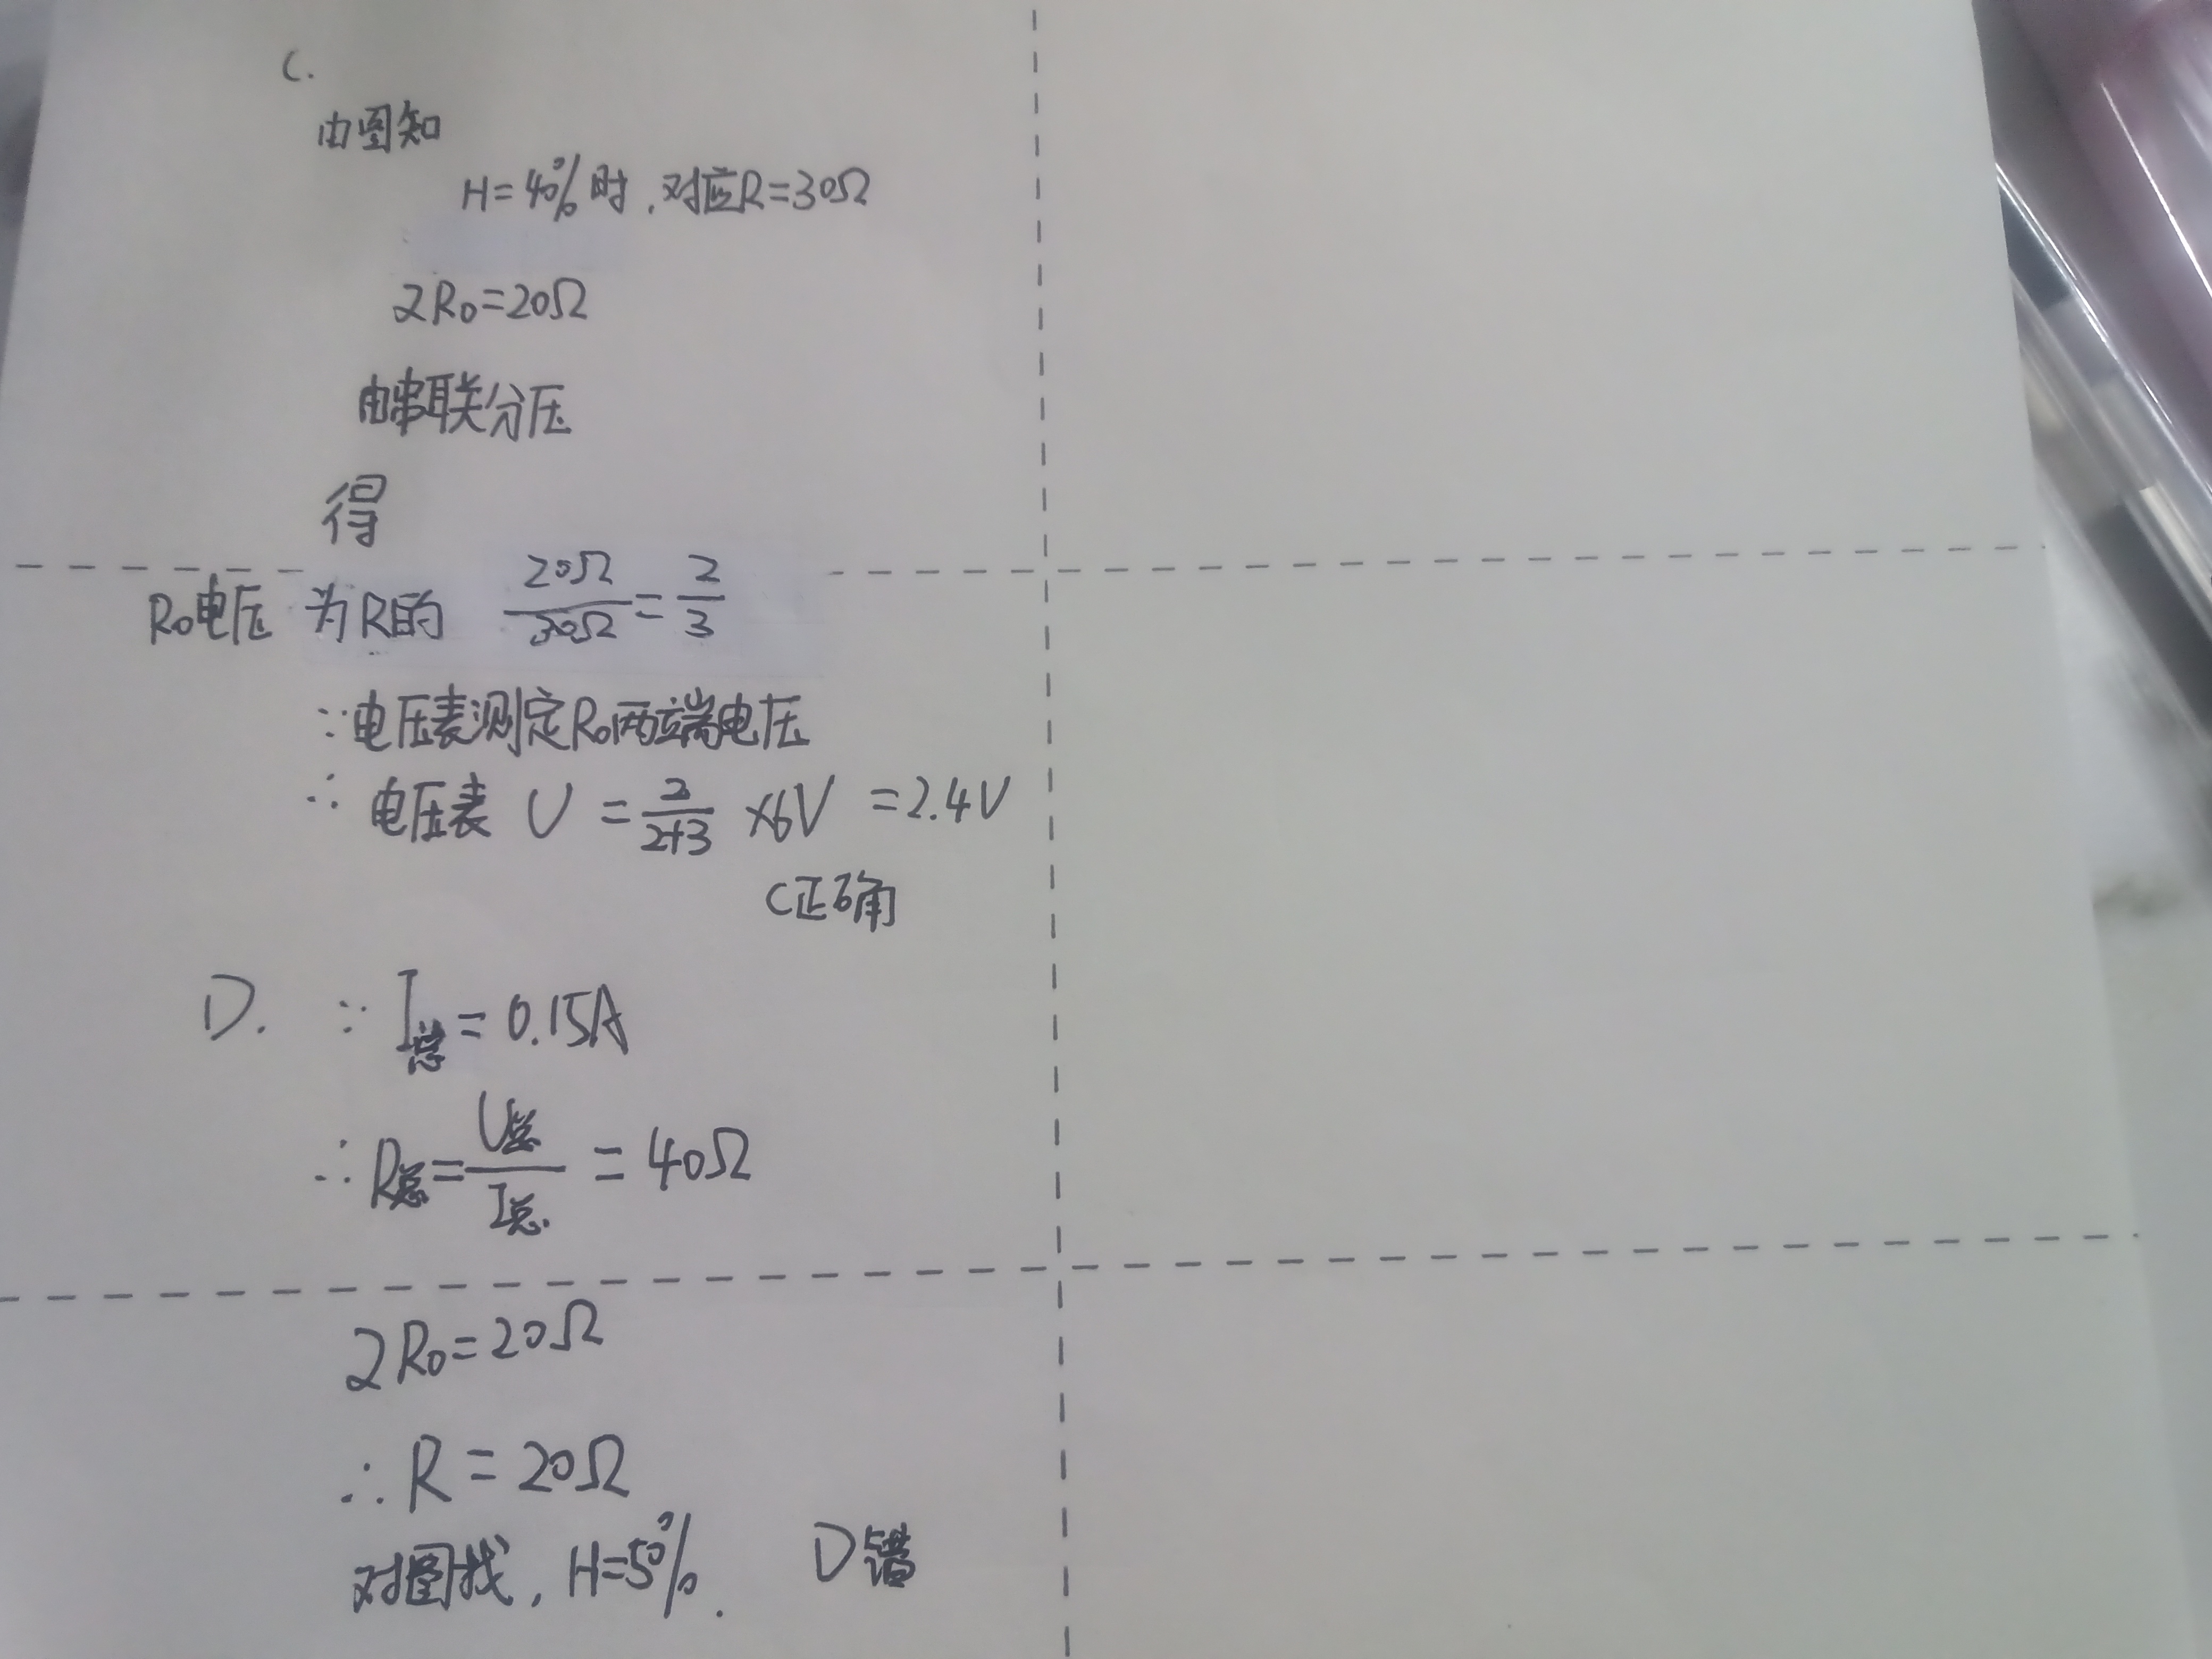 C.
由图知
H=40%时，对应R=30Ω
2R₀=20Ω
由串联分压
得
R₀电压 为R的 20Ω/30Ω=2/3
∵电压表测定R₀两端电压
∴ 电压表 U = 2/(2+3) ×6V =2.4V
C正确
D. ∵ I总= 0.15A
∴ R总=U总/I总. = 40Ω
2R₀=20Ω
∴ R = 20Ω
对图找，H=50%. D错